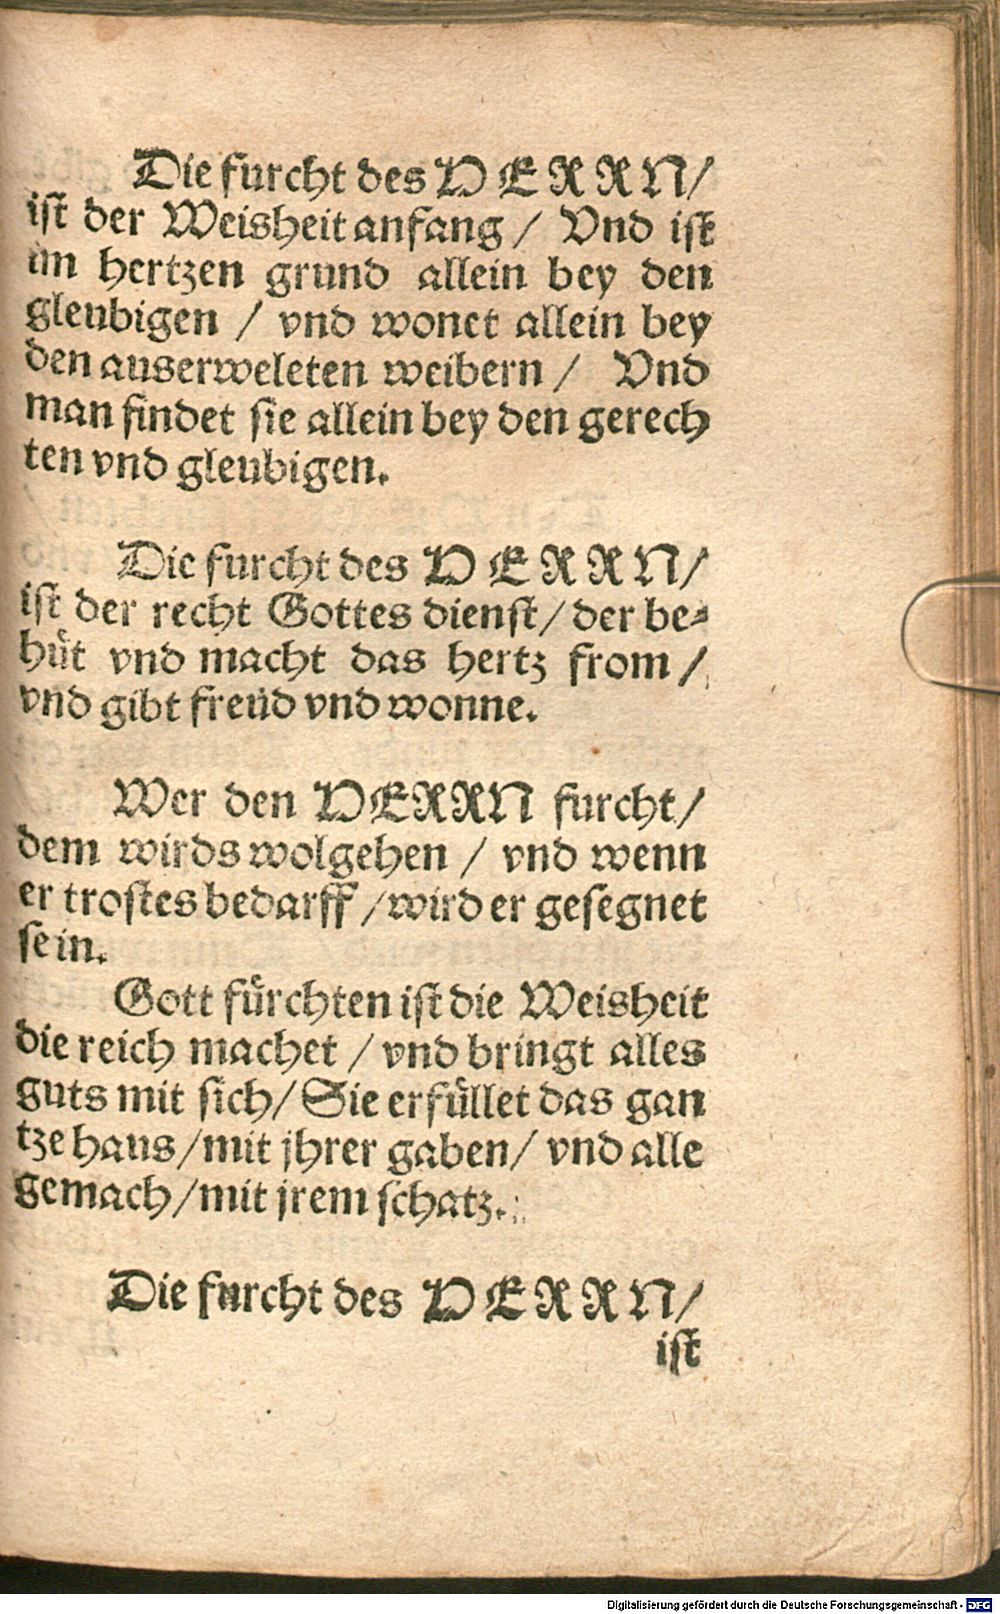 Die furcht des HERRN/
ist der Weisheit anfang / Vnd ist
im hertzen grund allein bey den
gleubigen / vnd wonet allein bey
den auserweleten weibern / Vnd
man findet sie allein bey den gerech
ten vnd gleubigen.
Die furcht des HERRN/
ist der recht Gottes dienst/ der be⸗
hüt vnd macht das hertz from/
vnd gibt freüd vnd wonne.
Wer den HERRN furcht/
dem wirds wolgehen / vnd wenn
er trostes bedarff /wird er gesegnet
sein.
Gott fürchten ist die Weisheit
die reich machet / vnd bringt alles
guts mit sich/ Sie erfüllet das gan
tze haus/mit jhrer gaben/ vnd alle
gemach/mit jrem schatz.
Die furcht des HERRN/
ist
Digitalisierung gefördert durch die Deutsche Forschungsgemeinschaft - DFG